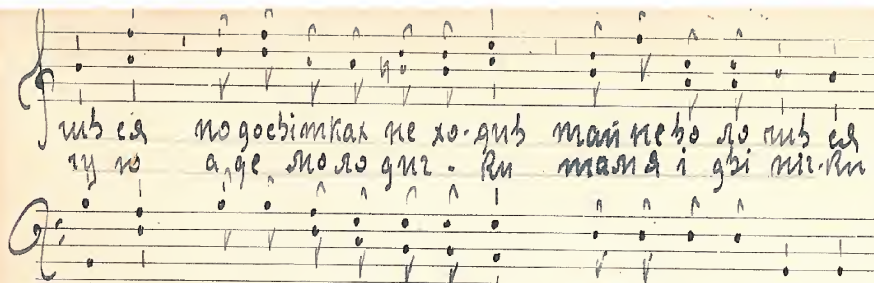 чив ся подосвітках не хо-див тай не во ло чив ся
чу ю а де мо ло дич - ки там я і дві ніч-ки